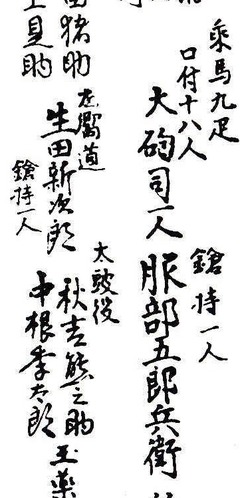 乘馬九疋
口付十八人
大砲司一人
鎗持一人
服部五郎兵衛
猪助
生田新次郎
鎗持一人
太鼓役
秋吉熊之助
中根季太郎
玉薬
見助